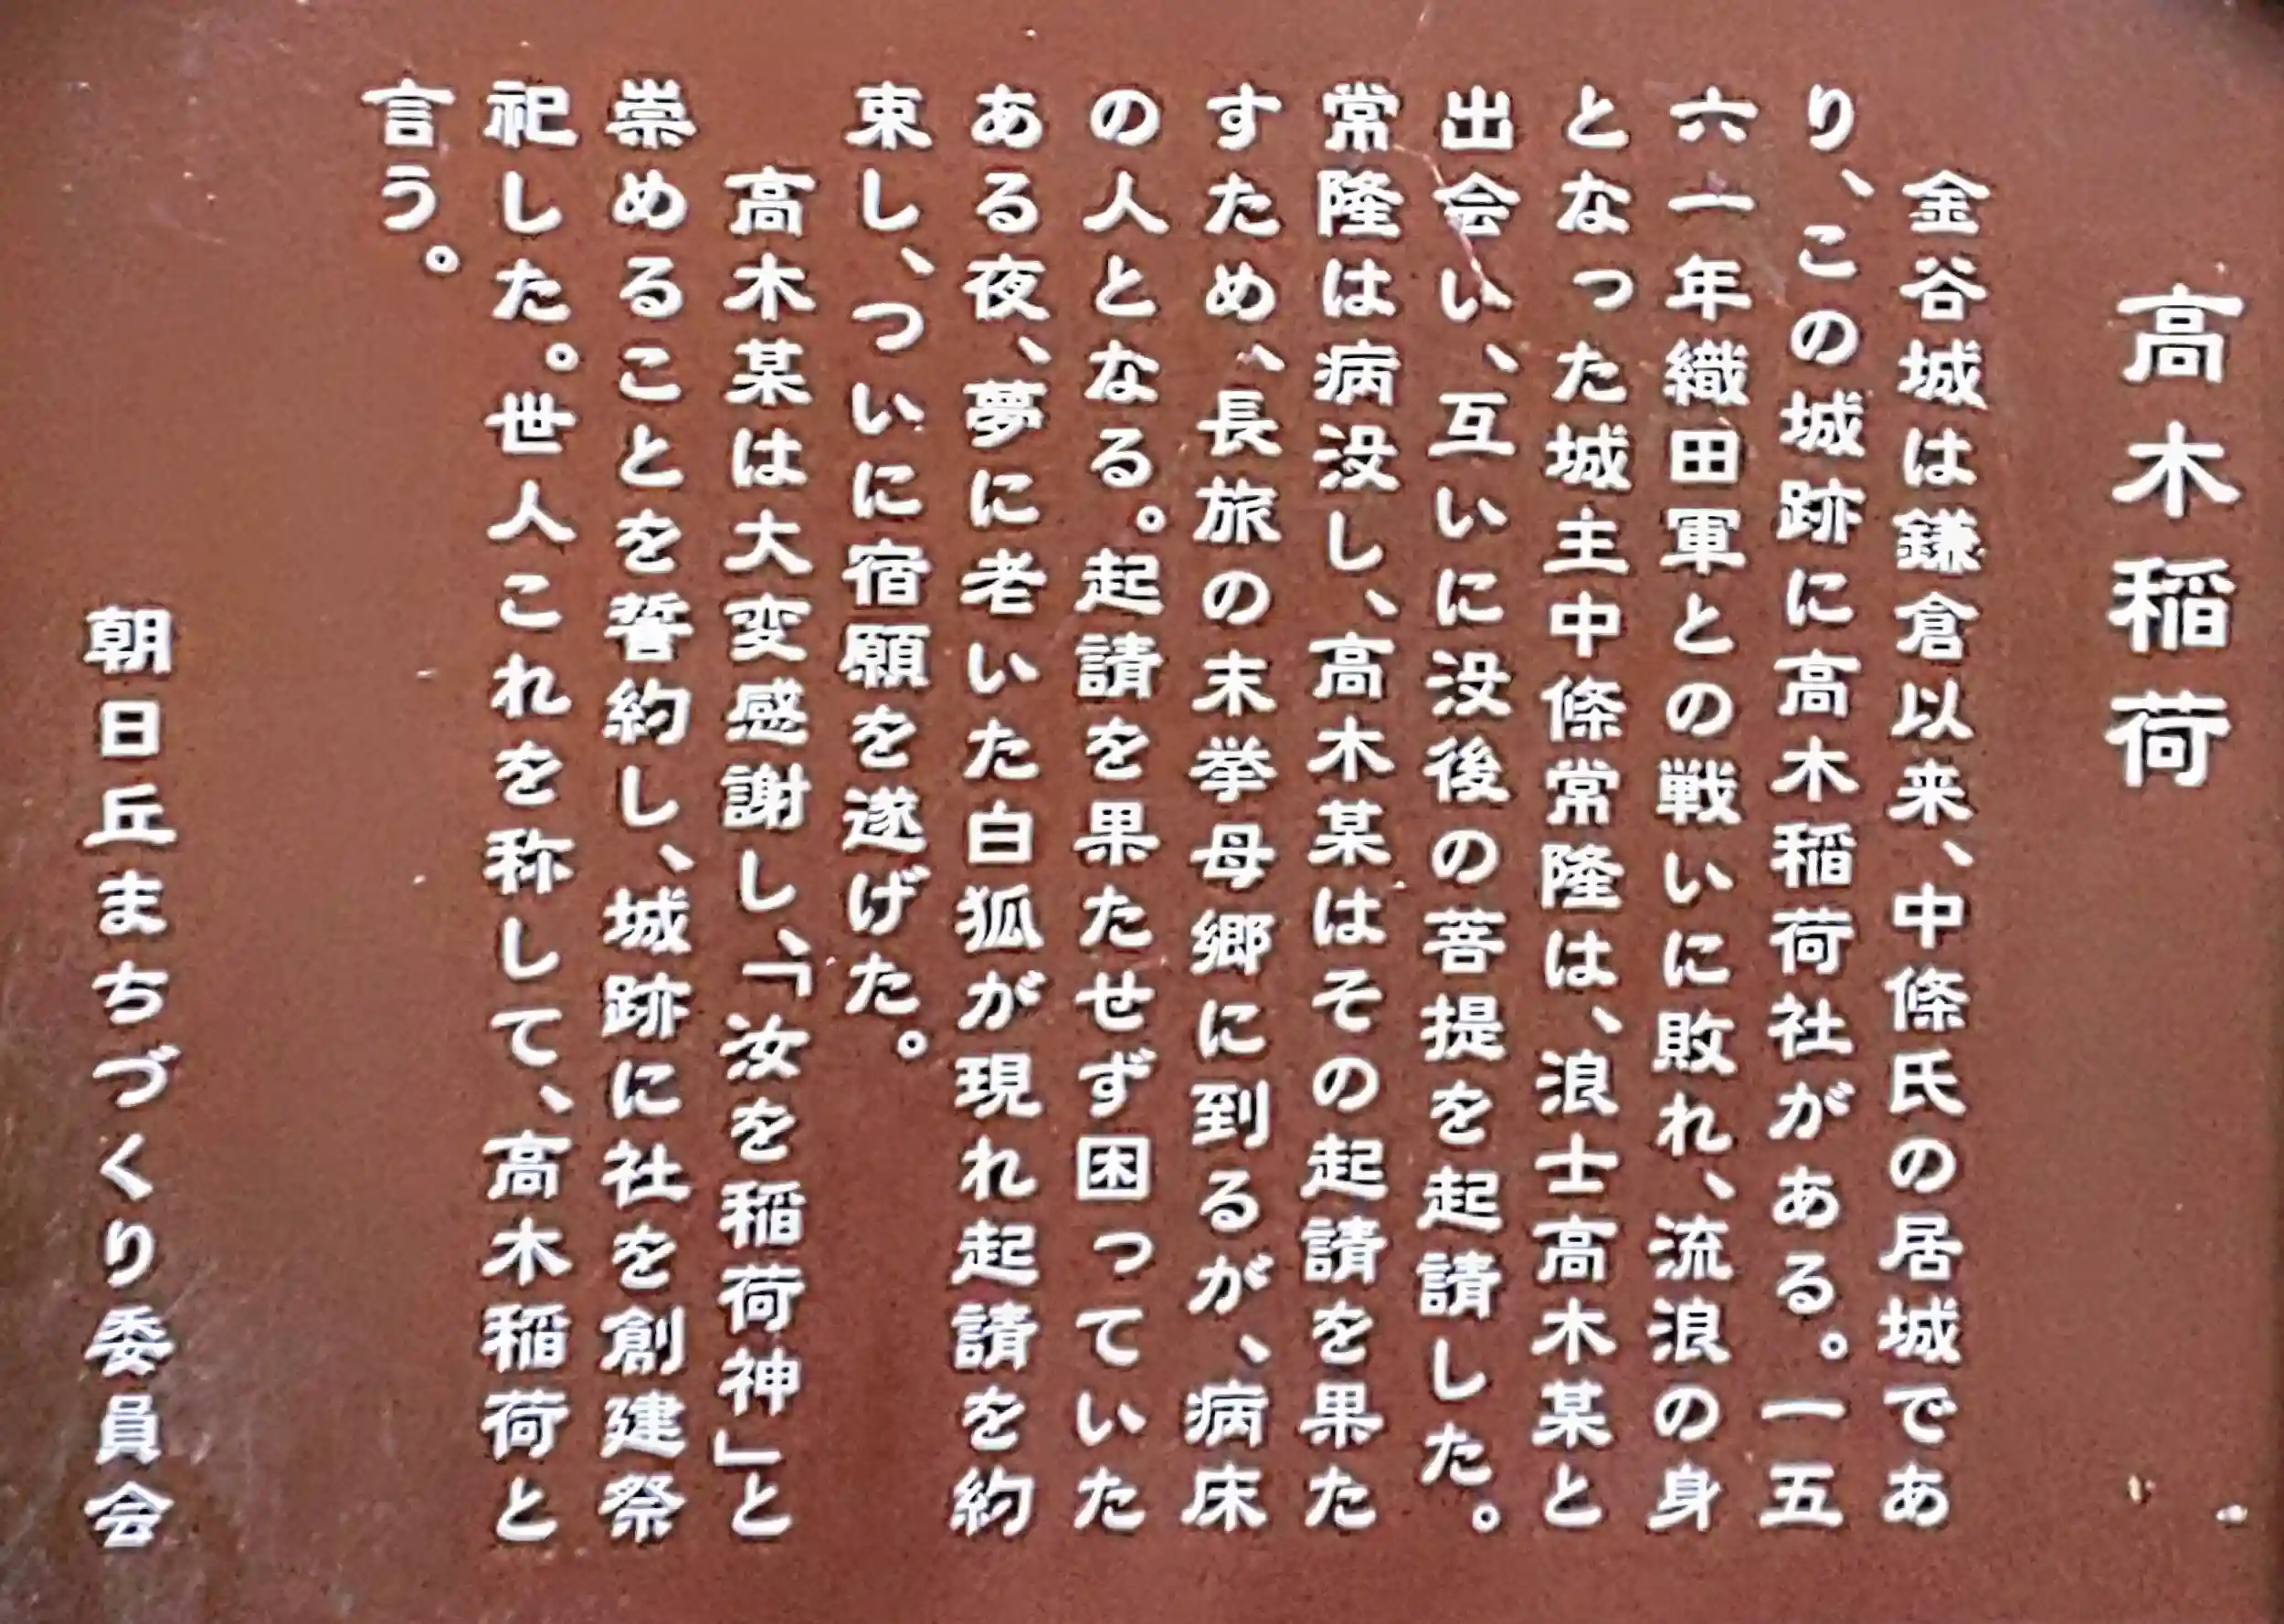 高木稲荷
金谷城は鎌倉以来、中條氏の居城であ
り、この城跡に高木稲荷社がある。一五
六一年織田軍との戦いに敗れ、流浪の身
となった城主中條常隆は、浪士高木某と
出会い、互いに没後の菩提を起請した。
常隆は病没し、高木某はその起請を果た
すため、長旅の末挙母郷に到るが、病床
の人となる。起請を果たせず困っていた
ある夜、夢に老いた白狐が現れ起請を約
束し、ついに宿願を遂げた。
高木某は大変感謝し、「汝を稲荷神」と
崇めることを誓約し、城跡に社を創建祭
祀した。世人これを称して、高木稲荷と
言う。
朝日丘まちづくり委員会